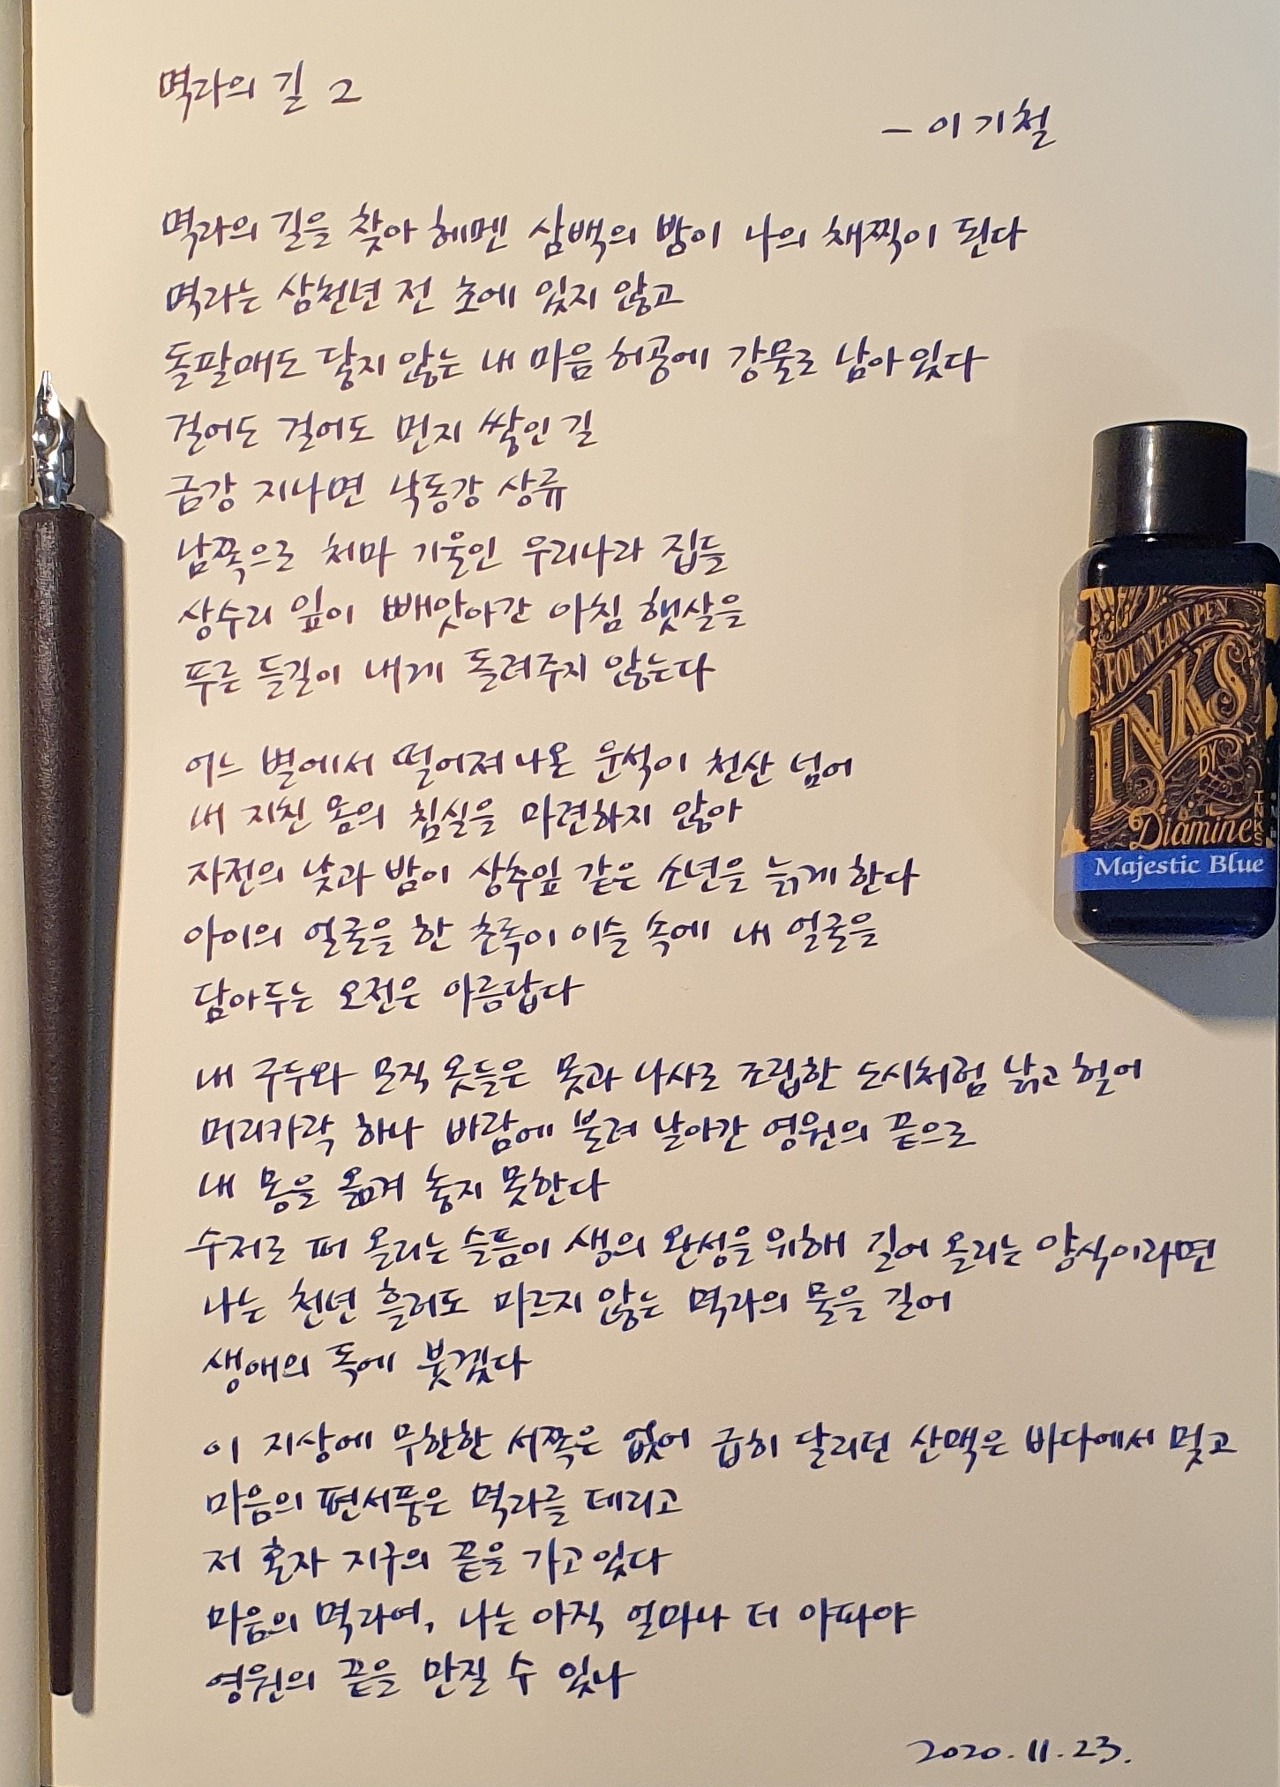 멱라의 길 2
- 이기철
멱라의 길을 찾아 헤멘 삼백의 밤이 나의 채찍이 된다
멱라는 삼천년 전 초에 있지 않고
돌팔매도 닿지 않는 내 마음 허공에 강물로 남아있다
걸어도 걸어도 먼지 쌓인 길
금강 지나면 낙동강 상류
남쪽으로 처마 기울인 우리나라 집들
상수리 잎이 빼앗아간 아침 햇살을
푸른 들길이 내게 돌려주지 않는다
어느 별에서 떨어져 나온 운석이 천산 넘어
내 지친 몸의 침실을 마련하지 않아
자전의 낮과 밤이 상추잎 같은 소년을 늙게 한다
아이의 얼굴을 한 초록이 이슬 속에 내 얼굴을
담아두는 오전은 아름답다
내 구두와 모직 옷들은 못과 나사로 조립한 도시처럼 낡고 헐어
머리카락 하나 바람에 불려 날아간 영원의 끝으로
내 몸을 옮겨 놓지 못한다
수저로 퍼 올리는 슬픔이 생의 완성을 위해 길어 올리는 양식이라면
나는 천년 흘러도 마르지 않는 멱라의 물을 길어
생애의 독에 붓겠다
이 지상에 무한한 서쪽은 없어 급히 달리던 산맥은 바다에서 멎고
마음의 편서풍은 멱라를 데리고
저 혼자 지구의 끝을 가고있다
마음의 멱라여, 나는 아직 얼마나 더 아파야
영원의 끝을 만질 수 있나
2020.11.23.
FOUNTAIN PEN
INKS
BY
Diamine
INKS
Majestic Blue